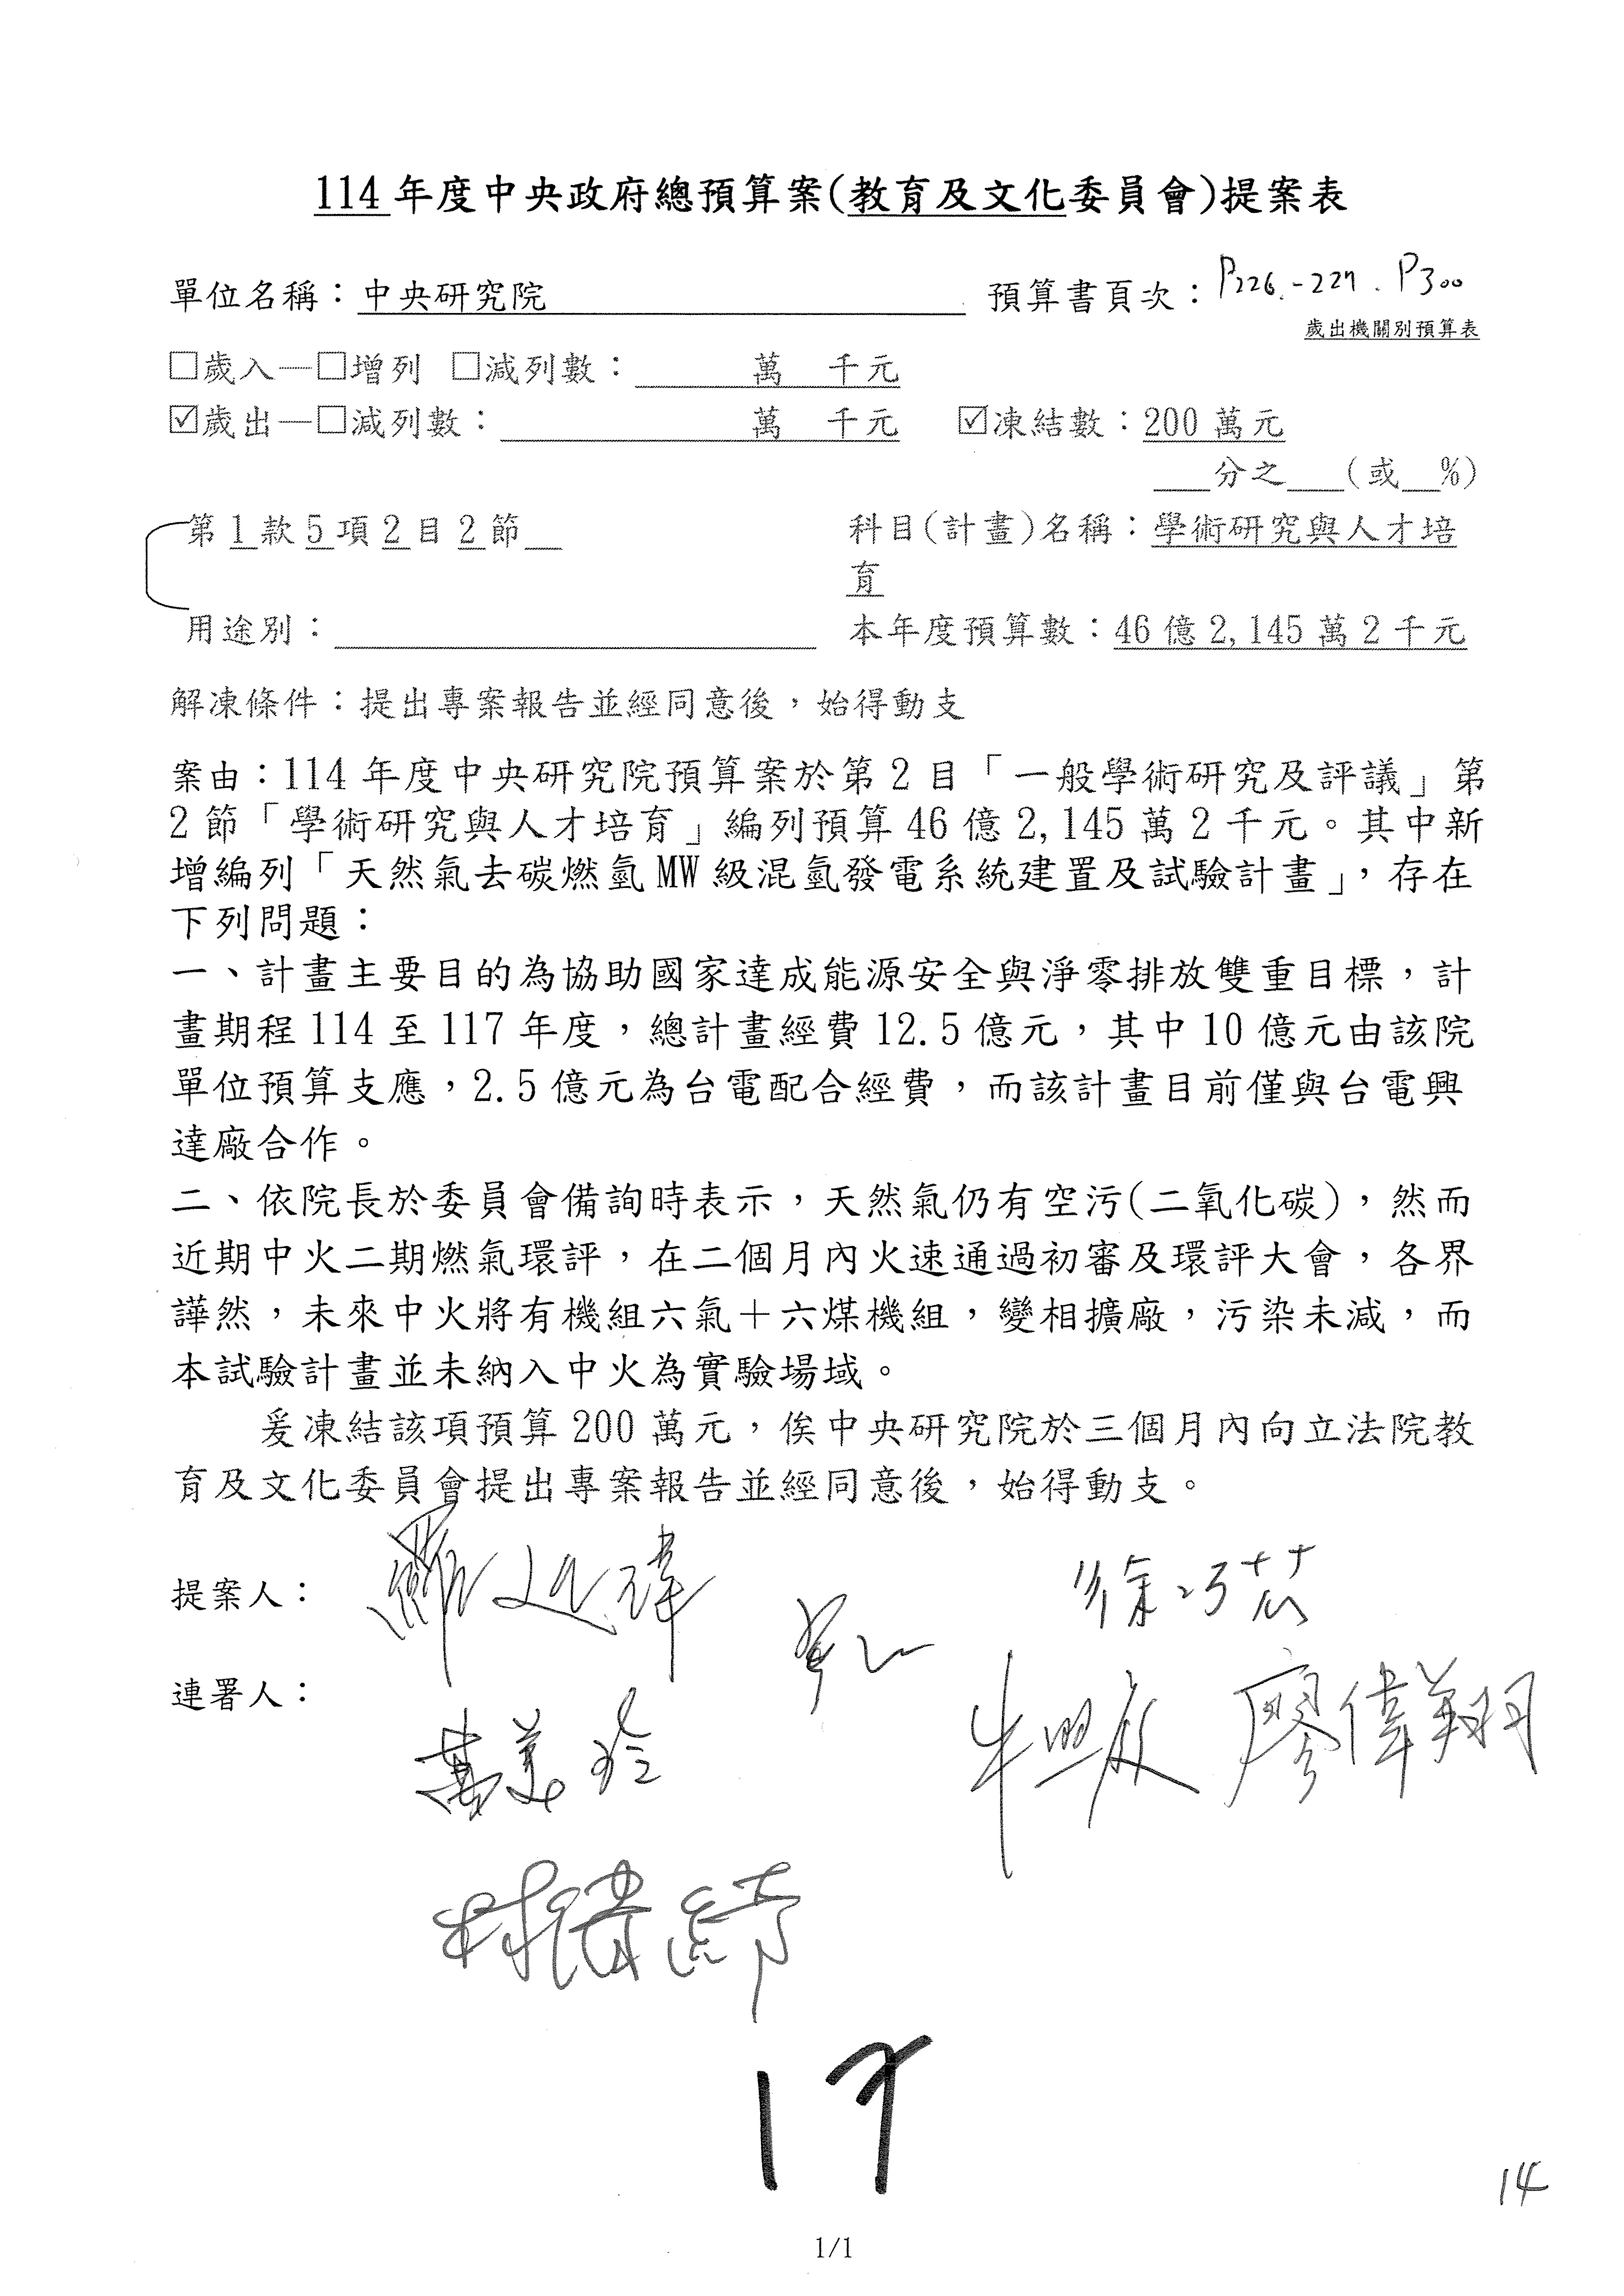 114 年度中央政府總預算案(教育及文化委員會)提案表
單位名稱：中央研究院 預算書頁次：P226.-227. P300
歲出機關別預算表
□歲入—□增列 □減列數： 萬 千元
☑歲出—□減列數： 萬 千元 ☑凍結數：200 萬元
分之 (或 %)
第 1 款 5 項 2 目 2 節 科目(計畫)名稱：學術研究與人才培
育
用途別： 本年度預算數：46 億 2,145 萬 2 千元
解凍條件：提出專案報告並經同意後，始得動支
案由：114 年度中央研究院預算案於第 2 目「一般學術研究及評議」第
2 節「學術研究與人才培育」編列預算 46 億 2,145 萬 2 千元。其中新
增編列「天然氣去碳燃氫 MW 級混氫發電系統建置及試驗計畫」，存在
下列問題：
一、計畫主要目的為協助國家達成能源安全與淨零排放雙重目標，計
畫期程 114 至 117 年度，總計畫經費 12.5 億元，其中 10 億元由該院
單位預算支應，2.5 億元為台電配合經費，而該計畫目前僅與台電興
達廠合作。
二、依院長於委員會備詢時表示，天然氣仍有空污(二氧化碳)，然而
近期中火二期燃氣環評，在二個月內火速通過初審及環評大會，各界
譁然，未來中火將有機組六氣＋六煤機組，變相擴廠，污染未減，而
本試驗計畫並未納入中火為實驗場域。
爰凍結該項預算 200 萬元，俟中央研究院於三個月內向立法院教
育及文化委員會提出專案報告並經同意後，始得動支。
提案人：羅廷瑋 徐巧芯
連署人：
萬美玲 牛煦庭 廖偉翔
林倩綺
17
14
1/1